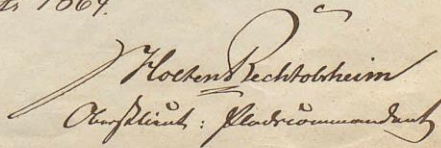 1864.
Holten Rechtolsheim
Oberstlieut: Platzcommandant